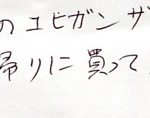 のユビガンザ
帰りに買って